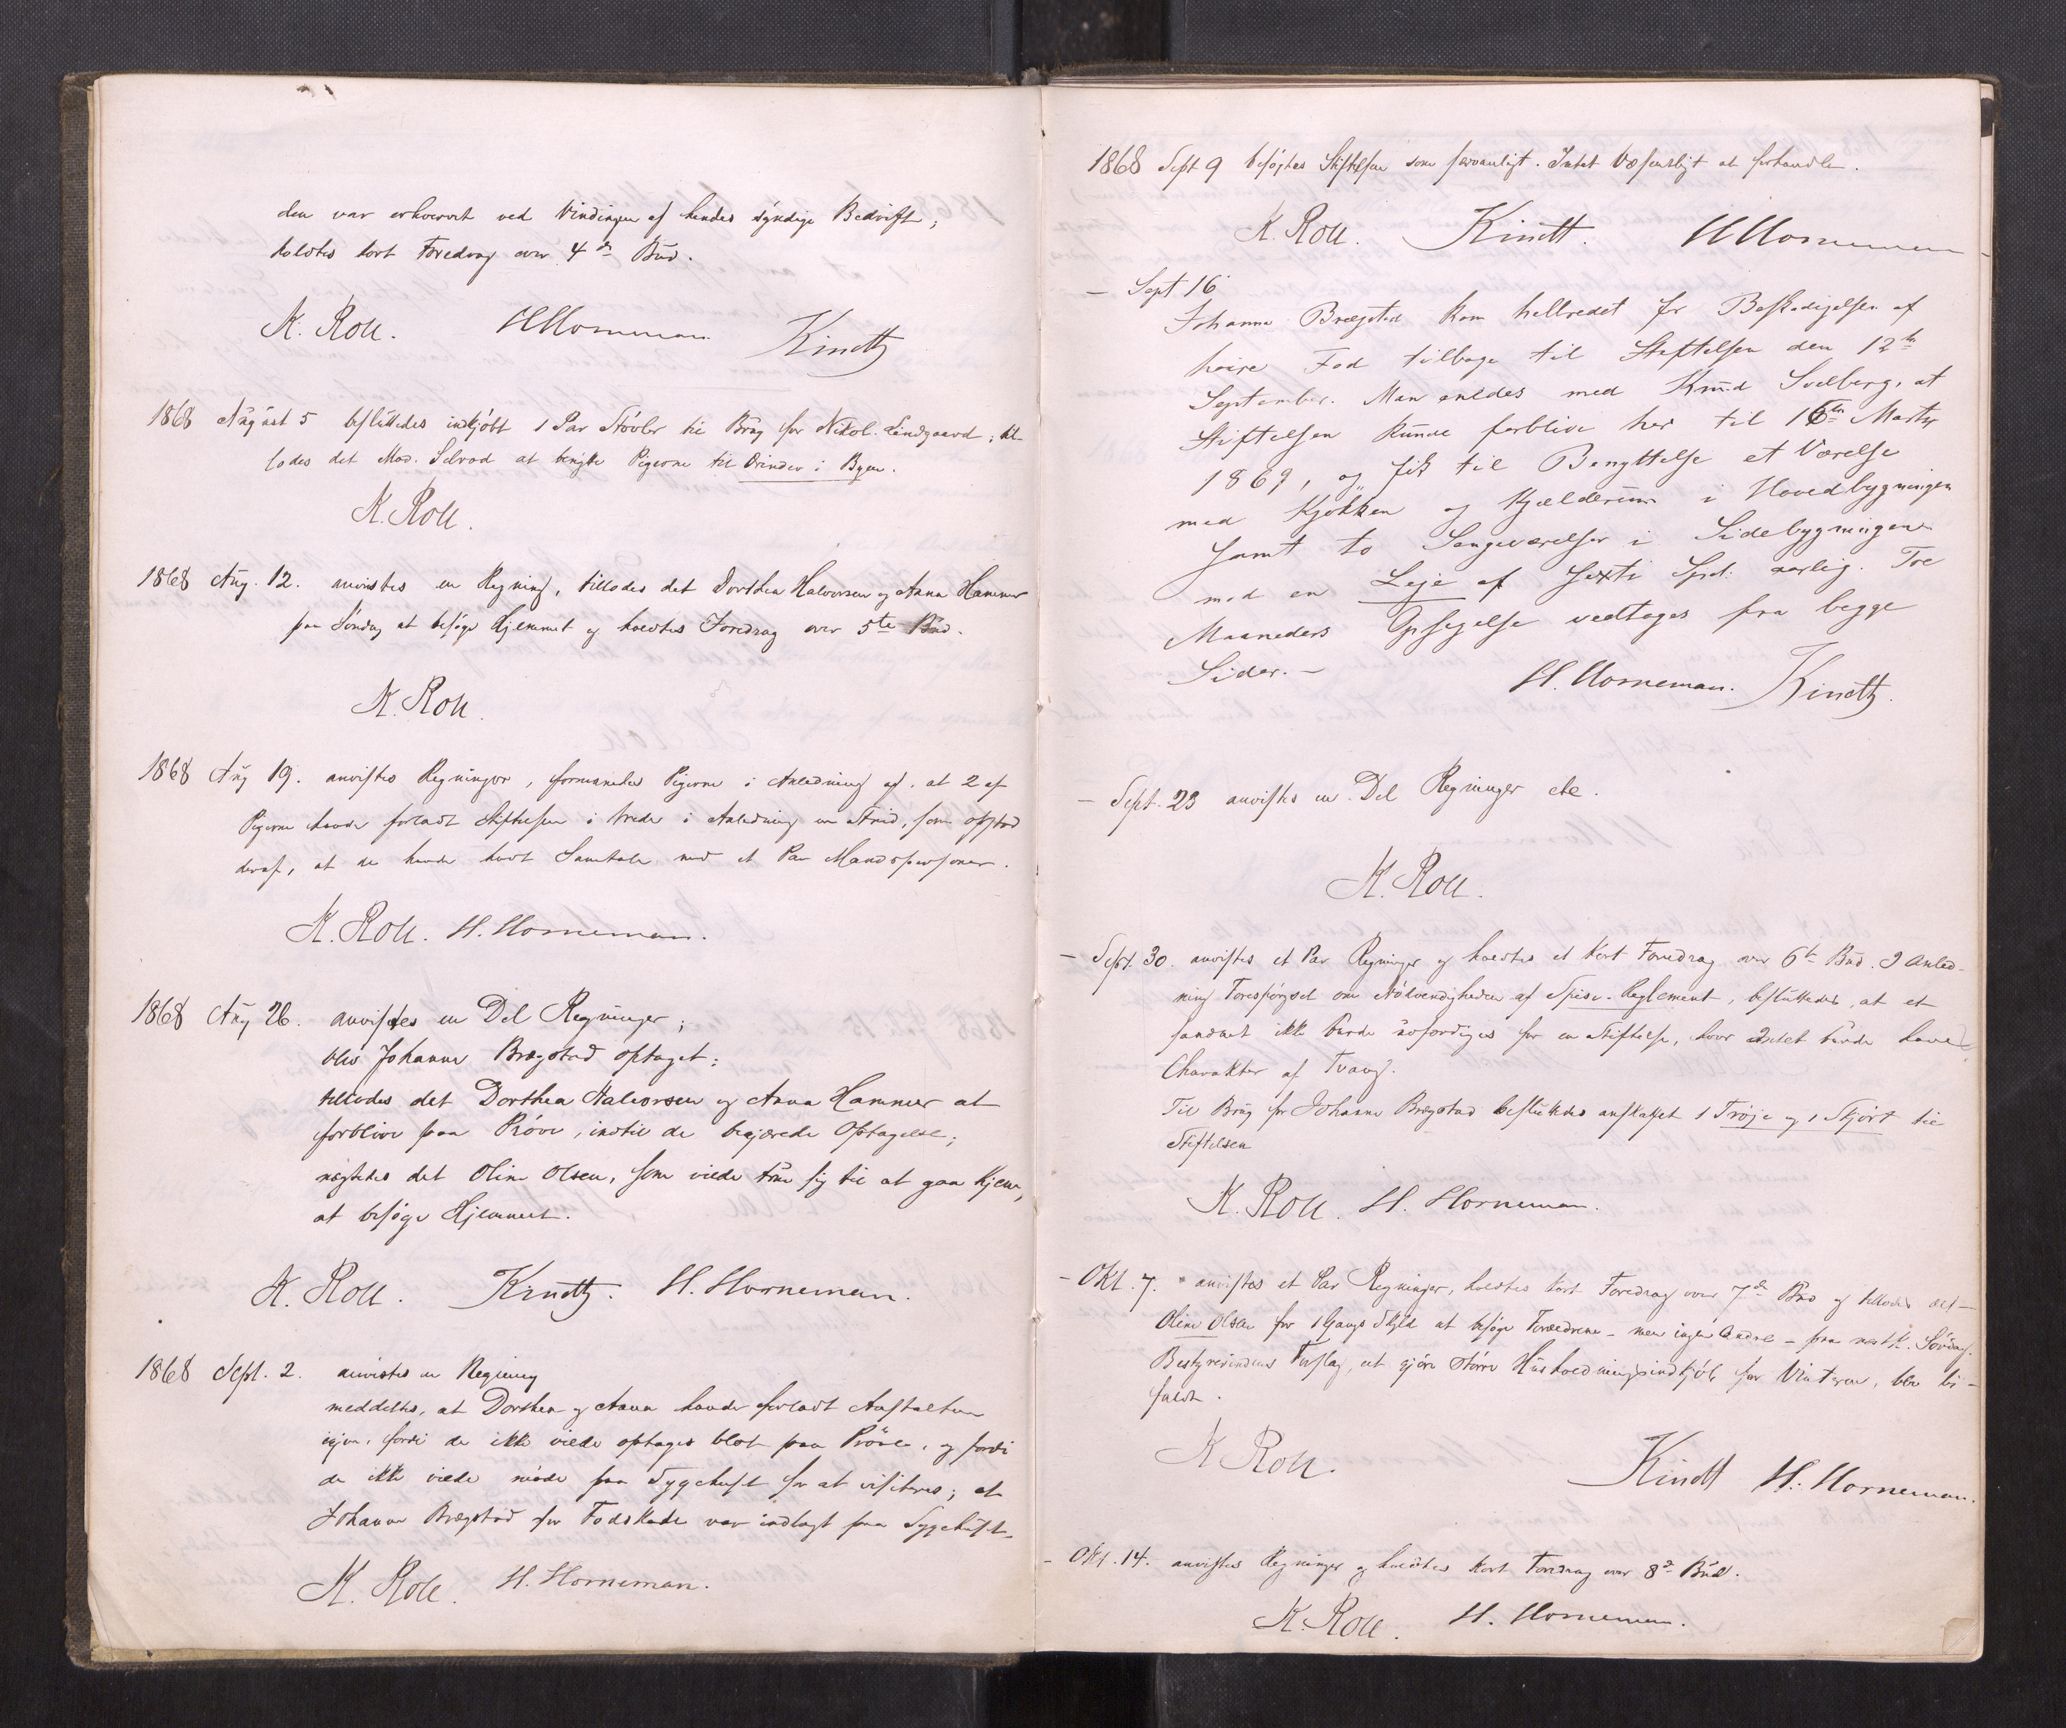 den var erhvervet ved Vindingen af hendes syndige Bedrift;
holdtes kort Foredrag over 4de Bud.
K. Roll. HHorneman Kindtz
1868 August 5 besluttedes indkjøbt 1 Par Støvler til Brug for Nikol. Lindgaard; til-
lodes det Mad. Selvod at benytte Pigerne til Ærinder i Byen.
K. Roll.
1868 Aug. 12. anvistes en Regning, tillodes det Dorthea Halvorsen og Anna Hammer
paa Søndag at besøge Hjemmet og holdtes Foredrag over 5te Bud.
K. Roll
1868 Aug 19. anvistes Regninger, formanedes Pigerne i Anledning af, at 2 af
Pigerne havde forladt Stiftelsen i Vrede i Anledning en Strid, som opstod
deraf, at de havde havt Samtale med et Par Mandspersoner.
K. Roll. H. Horneman.
1868 Aug 26. anvistes en Del Regninger;
blev Johanna Brægstad optaget;
tillodes det Dorthea Halvorsen og Anna Hammer at
forblive paa Prøve, indtil de begjærede Optagelse;
nægtedes det Oline Olsen, som vilde true sig til at gaa hjem,
at besøge Hjemmet.
K. Roll. Kindtz. H. Horneman.
1868 Sept. 2. anvistes en Regning
meddeltes, at Dorthea og Anna havde forladt Anstalten
igjen, fordi de ikke vilde optages blot paa Prøve, og fordi
de ikke vilde møde paa Sygehuset for at visiteres; at
Johanna Brægstad for Fodskade var indlagt paa Sygehuset.
K. Roll. H. Horneman.
1868 Sept 9 besøgtes Stiftelsen som sædvanligt. Intet Væsentligt at forhandle.
K. Roll. Kindtt. HHorneman
— Sept 16
Johanna Brægstad kom helbredet for Beskadigelsen af
høire Fod tilbage til Stiftelsen den 12te
September. Man enedes med Knud Solberg, at
Stiftelsen kunde forblive her til 16de Marts
1869, og fik til Benyttelse et Værelse
med Kjøkken og Kjælderrum i Hovedbygningen
samt to Sengeværelser i Sidebygningen
mod en Leje af sexti Spd. aarlig. Tre
Maaneders Opsigelse vedtages fra begge
Sider. —
H. Horneman. Kindtz.
— Sept. 23 anvistes en Del Regninger etc.
K. Roll.
— Sept. 30. anvistes et Par Regninger og holdtes et kort Foredrag over 6te Bud. I Anled-
ning Forespørgsel om Nødvendigheden af Spise-Reglement, besluttedes, at et
saadant ikke burde udfærdiges for en Stiftelse, hvor Intet burde have
Charakter af Tvang.
Til Brug for Johanna Brægstad besluttedes anskaffet 1 Trøje og 1 Skjørt til
Stiftelsen
K. Roll. H. Horneman.
— Okt. 7. anvistes et Par Regninger, holdtes kort Foredrag over 7de Bud og tillodes det —
Oline Olsen for 1 Gangs Skyld at besøge Forældrene — men ingen Andre — paa næstk. Søndag.
Bestyrerindens Forslag, at gjøre større Husholdningsindkjøb for Vinteren, blev bi-
faldt.
K Roll. Kindtt H. Horneman.
— Okt. 14. anvistes Regninger og holdtes kort Foredrag over 8de Bud.
K. Roll. H. Horneman.